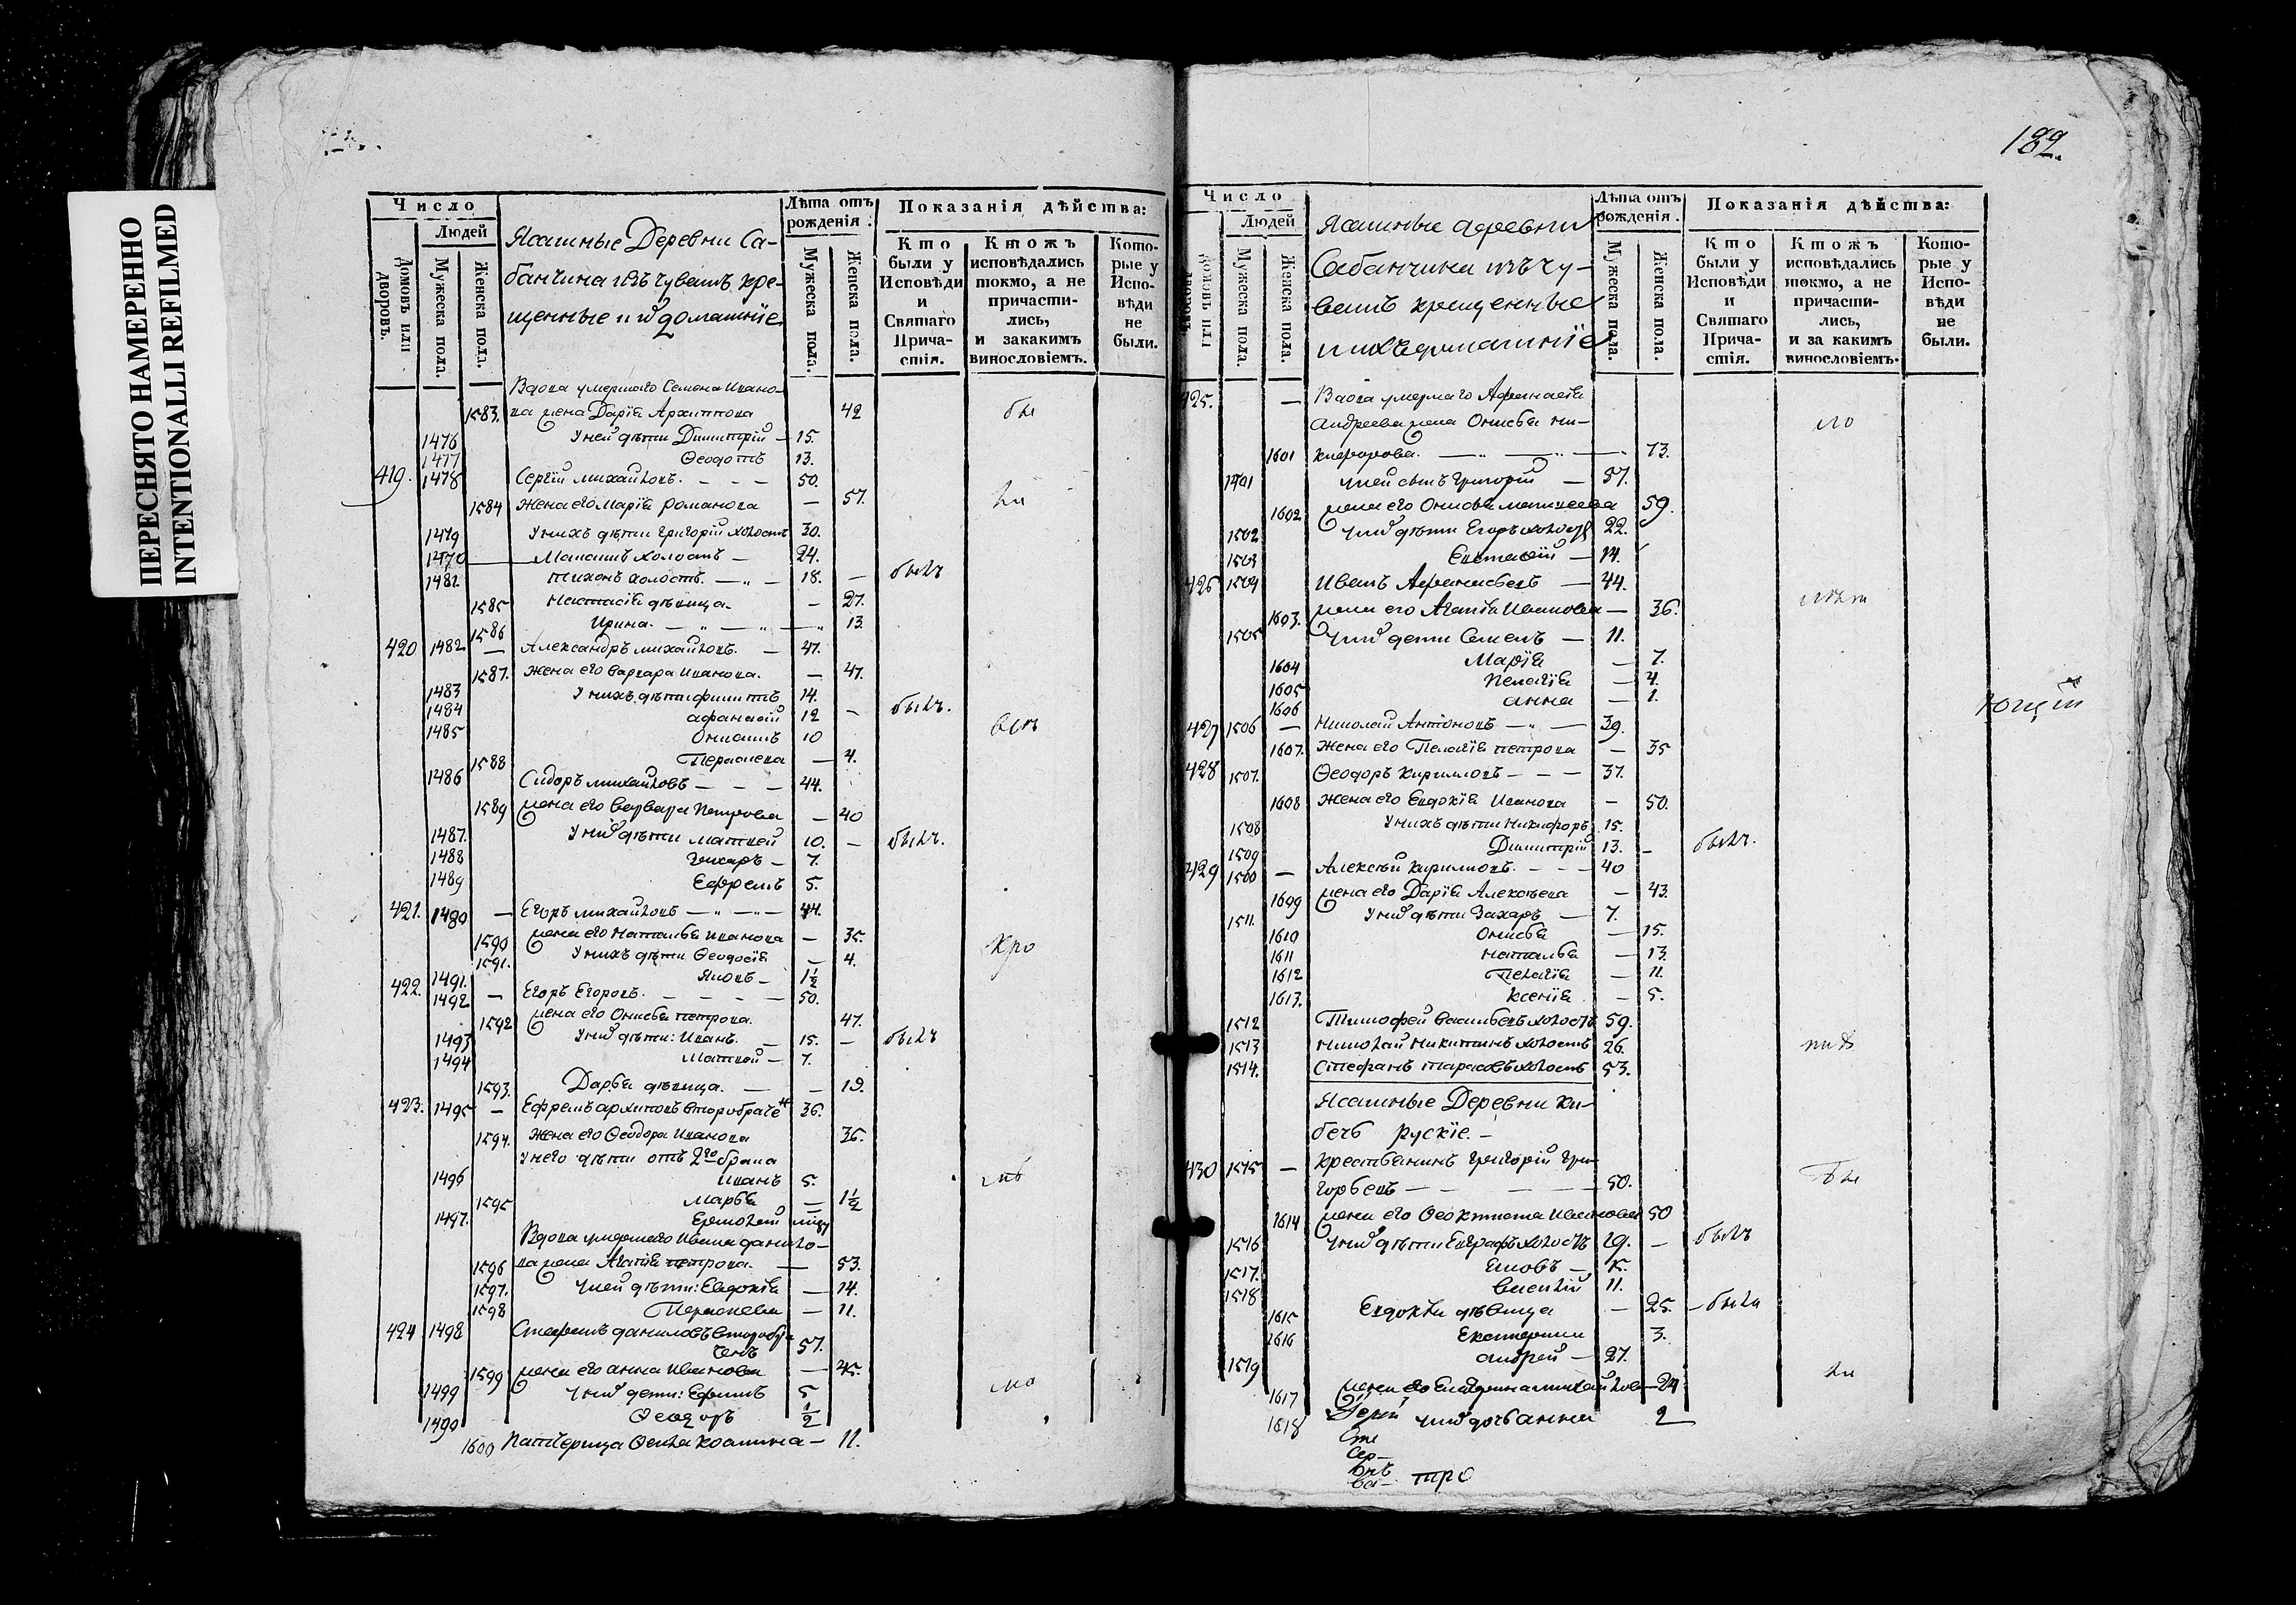 ПЕРЕСНЯТО НАМЕРЕННО
INTENTIONALLI REFILMED
Число
Людей
Домовъ или дворовъ.
Мужеска пола.
Женска пола.
Ясашные Деревни Са-
банчина изъ чувашъ кре-
щенные и их домашніе
Лѣта отъ рожденія.
Мужеска пола.
Женска пола.
Показанія дѣйства:
Кто были у Исповѣди и Святаго Причастія.
Ктожъ исповѣдались токмо, а не причастились, и закакимъ винословіемъ.
Которые у Исповѣди не были.
Вдова умершаго Семена Ивано-
1583. ва жена Дарія Архиппова 42 бы
1476 У ней дѣти Димитрій 15.
1477 Ѳеодотъ 13.
419. 1478 Сергій Михайловъ. 50.
1584 Жена его Марія Романова 57. ли
1479 У нихъ дѣти Григорій холостъ 30.
1470 холостъ 24.
1481 Тихонъ холостъ. 18. былъ
1585 Настасія дѣвица. 27.
1586 Ирина. 13.
420 1482 Александръ Михайловъ. 47.
1587. Жена его Варвара Иванова. 47.
1483 У нихъ дѣти Филиппъ 14.
1484 Афанасій 12 былъ.
1485 Игнатъ 10
1588 Парасковia 4.
1486 Сидоръ Михайловъ 44.
1589 жена его Варвара Петрова 40
1487. У них дѣти Матвей 10. былъ.
1488 Захаръ 7.
1489 Ефремъ 5.
421. 1480 Егоръ Михайловъ 44.
1590 жена его Наталья Иванова 35. кро
1591. У нихъ дѣти Ѳеодосія 4.
1491. Яковъ 1 1/2
422. 1492 Егоръ Егоровъ. 50.
1592 жена его Онисья Петрова. 47.
1493 У них дѣти: Иванъ. 15. былъ
1494 Матвей 7.
1593. Дарья дѣвица. 19.
423. 1495 Ефремъ Архиповъ второбраче 36.
1594. Жена его Ѳеодора Иванова 36.
У него дѣти отъ 2го брака
1496 Иванъ 5.
1595 Марья 1 1/2
1497. Ермолай
Вдова умершаго Ивана Данило-
1596 ва жена Агапія Петрова. 53.
1597. У ней дѣти: Евдокія 14.
1598 Парасковья 11.
424 1498 Стефанъ Даниловъ второбра
ченъ 57.
1599 жена его Анна Иванова 45.
1499 У них дети: Ефимъ 5 ло
1490 Ѳеодоръ 1/2
1600 Ѳекла 11.
182.
Число
Людей
Домовъ или дворовъ
Мужеска пола.
Женска пола.
Ясашные деревни
Сабанчина изъ чу-
вашъ крещенные
и ихъ домашніе
Лѣта отъ рожденія.
Мужеска пола.
Женска пола.
Показанія дѣйства:
Кто были у Исповѣди и Святаго Причастія.
Ктожъ исповѣдались токмо, а не причастились, и за какимъ винословіемъ.
Которые у Исповѣди не были.
425. Вдова умершаго Афанасія
Андреева жена Онисья Ни- ло
1601 кифорова. 73.
1501 У ней сынъ Григорій 57.
1602 жена его Онисья Матвеева 59.
1502 У них дѣти Егоръ холостъ 22.
1503 Евстафій 14.
426 1504 Иванъ Афанасьевъ 44.
1603. жена его Агапія Иванова 36.
1505 У них дети Семенъ 11.
1604 Марія 7.
1605 Пелагія 4.
1606 Анна 1. ющій
427 1506 Николай Антоновъ 39.
1607. Жена его Пелагія Петрова 35
428 1507. Ѳеодоръ Кириловъ 37.
1608 Жена его Евдокія Иванова 50.
1508 У нихъ дѣти Никифоръ 15.
1509 Димитрій 13. былъ.
429 1500 Алексѣй Кириловъ. 40
1609 жена его Дарія Алексѣева 43.
1511. У них дѣти Захаръ 7.
1610 Онисья 15.
1611 Наталья 13.
1612 Пелагія 11.
1613. Ксенія 5.
1512 Тимофей Васильевъ холостъ 59.
1513 Николай Никитинъ холостъ 26.
1514. Стефанъ Тарасовъ холостъ 53.
Ясашные Деревни Ки-
бечь рускіе.
430 1515 Крестьянинъ Григорій Гри- бы
горьевъ 50.
1614 жена его Ѳеоктиста Иванова 50
1516 У них дѣти Евграфъ холостъ 19. былъ
1517. Яковъ 15.
1518 Василій 11.
1615 Евдокѣя дѣвица 25. была
1616 Екатерина 3.
1519 Андрей 27.
1617 жена его Михайлова 24 ли
1618 У них дочь Анна 2
Сте
Сер-
тро